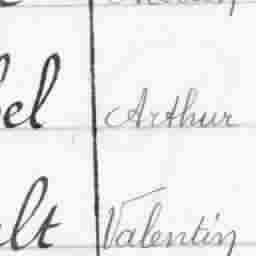 el Arthur
lt Valentin